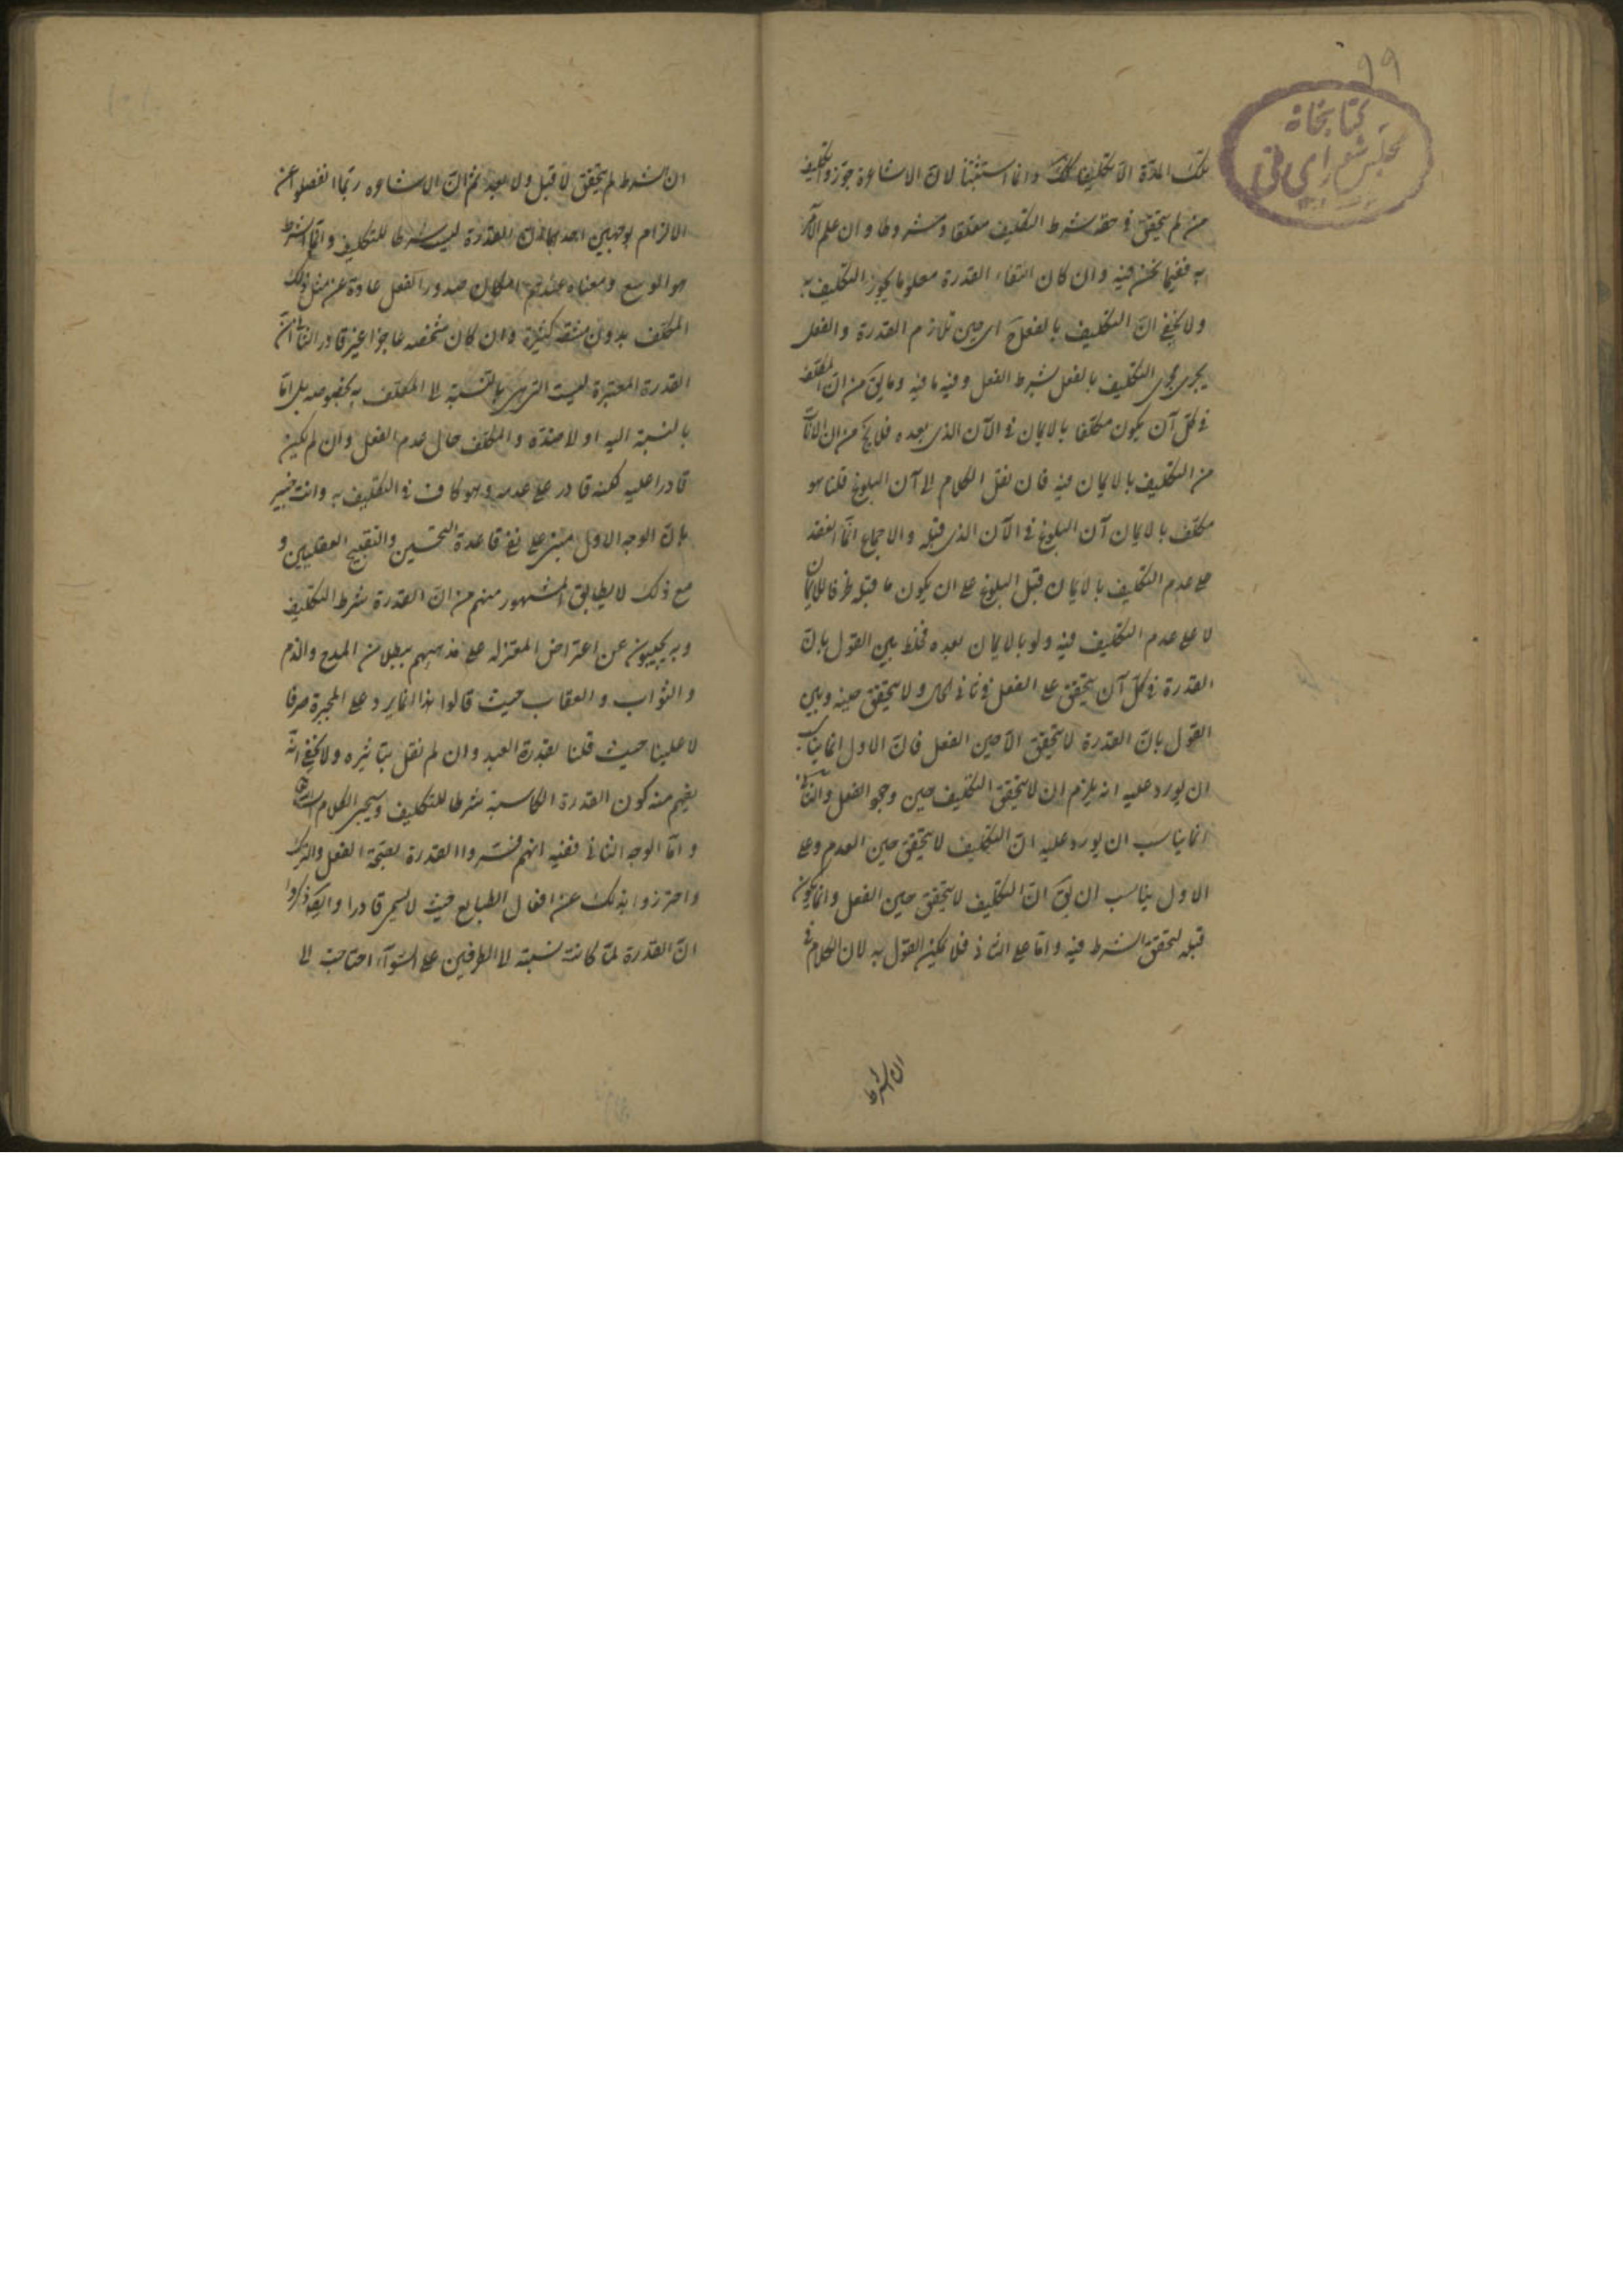 ٩٩
كتابخانه
مجلس شوراى ملى
تلك المادة الا تكليفا كذلك وانما استثنينا لان الاشاعرة جوزوا تكليف
من لم يتحقق في حقه شرط التكليف معلقا ومشروطا وان علم الآمر
به ففيما نحن فيه وان كان انتفاء القدرة معلوما يجوز التكليف به
ولا يخفى ان التكليف بالفعل ح اى حين تلازم القدرة والفعل
يجرى مجرى التكليف بالفعل بشرط الفعل وفيه ما فيه وما يق من ان المكلف
في كل آن يكون مكلفا بالايمان في الآن الذى بعده فلا يخ من ان الآنات
من التكليف بالايمان فيه فان نقل الكلام الى آن البلوغ قلنا هو
مكلف بالايمان آن البلوغ في الآن الذى قبله والاجماع انما انعقد
على عدم التكليف بالايمان قبل البلوغ على ان يكون ما قبله ظرفا للايمان
لا على عدم التكليف فيه ولو بالايمان بعده فخلط بين القول بان
القدرة في كل آن يتحقق على الفعل في ثانى الحال ولا يتحقق حينه وبين
القول بان القدرة لا يتحقق الا حين الفعل فان الاول انما يناسب
ان يورد عليه انه يلزم ان لا يتحقق التكليف حين وجو الفعل والثانى
انما يناسب ان يورد عليه ان التكليف لا يتحقق حين العدم وعلى
الاول يناسب ان يق ان التكليف لا يتحقق حين الفعل وانما يكون
قبله لتحقق الشرط فيه واما على الثانى فلا يمكن القول به لان الكلام في
ان الشرط
ان الشرط لم يتحقق لا قبل ولا بعد ثم ان الاشاعره ربما انفصلوا عن
الالزام بوجهين احدهما ان القدرة ليست شرطا للتكليف وانما الشرط
هو الوسع ومعناه عندهم امكان صدور الفعل عادة عن مثل ذلك
المكلف بدون مشقة كثيرة وان كان شخصه عاجزا غير قادر الثانى ان
القدرة المعتبرة ليست التى هى بالنسبة الى المكلف به بخصوصه بل اما
بالنسبة اليه او لا ضده والمكلف حال عدم الفعل وان لم يكن
قادرا عليه لكنه قادر على عدمه وهو كاف في التكليف به وانت خبير
بان الوجه الاول مبنى على نفى قاعدة التحسين والتقبيح العقليين و
مع ذلك لا يطابق المشهور منهم من ان القدرة شرط التكليف
وبه يجيبون عن اعتراض المعتزله على مذهبهم ببطلان المدح والذم
والثواب والعقاب حيث قالوا هذا انما يرد على المجبرة صرفا
لا علينا حيث قلنا بقدرة العبد وان لم نقل بتاثيره ولا يخفى انه
يفهم منه كون القدرة الكاسبة شرطا للتكليف وسيجىء الكلام
واما الوجه الثانى ففيه انهم فسروا القدرة بصحة الفعل والترك
واحترزوا بذلك عن افعال الطبايع حيث لا يسمى قادرا وايضا ذكروا
ان القدرة لما كانت نسبته الى الطرفين على السوآء احتاجت الى